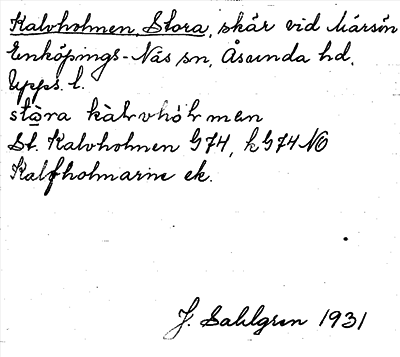 Kalvholmen, Stora, skär vid Mårsön
Enköpings-Näs sn, Åsunda hd.
Upps. l.
stò̱ra kàlvhól·men
St. Kalvholmen G74, kG74NO
Kalfholmarne ek.
J. Sahlgren 1931